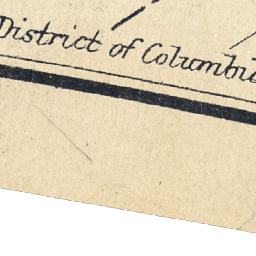 District of Columbi